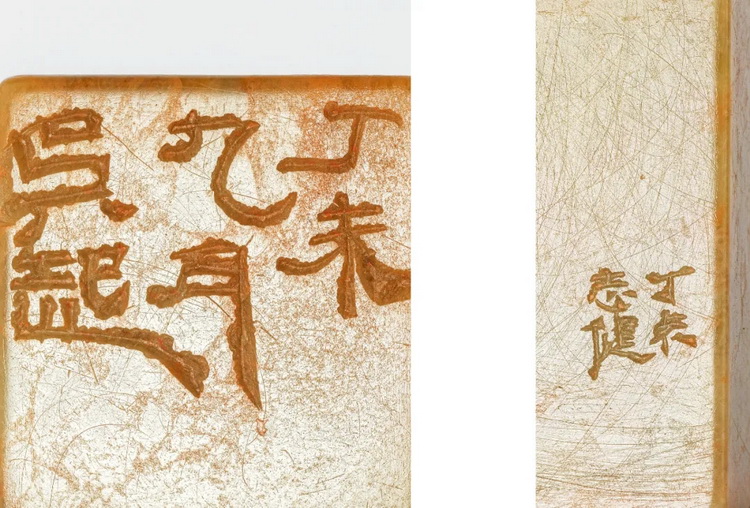 丁未
九月
吳起
丁未
志健